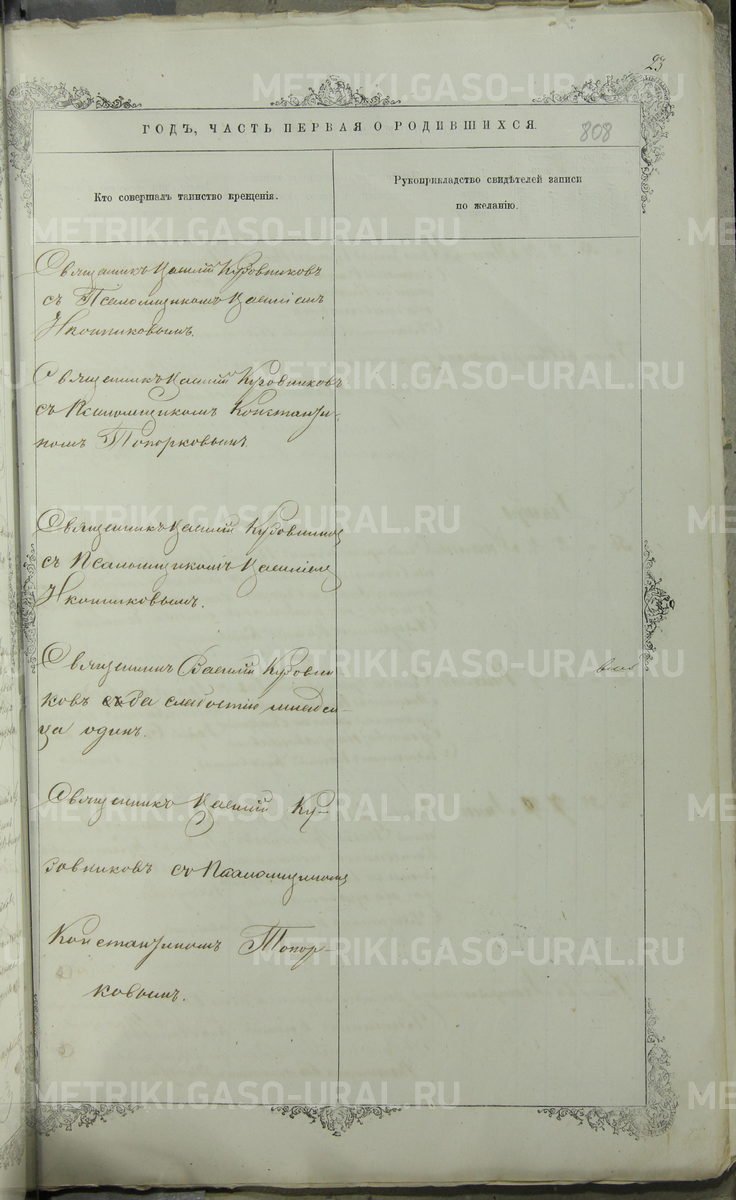 23
ГОДЪ, ЧАСТЬ ПЕРВАЯ О РОДИВШИХСЯ.
808
Кто совершалъ таинство крещенія.
Рукоприкладство свидѣтелей записи
по желанію.
Священникъ Василій Кузовниковъ
съ Псаломщикомъ Василіемъ
Иконниковымъ.
Священникъ Василій Кузовниковъ
съ Псаломщикомъ Константи-
номъ Топорковымъ.
Священникъ Василій Кузовников
съ Псаломщикомъ Василіем
Иконниковымъ.
Священникъ Василій Кузовни
ковъ за слабостію младен-
ца одинъ.
Священникъ Василій Ку-
зовниковъ съ Псаломщикомъ
Константиномъ Топор-
ковымъ.
METRIKI.GASO-URAL.RU